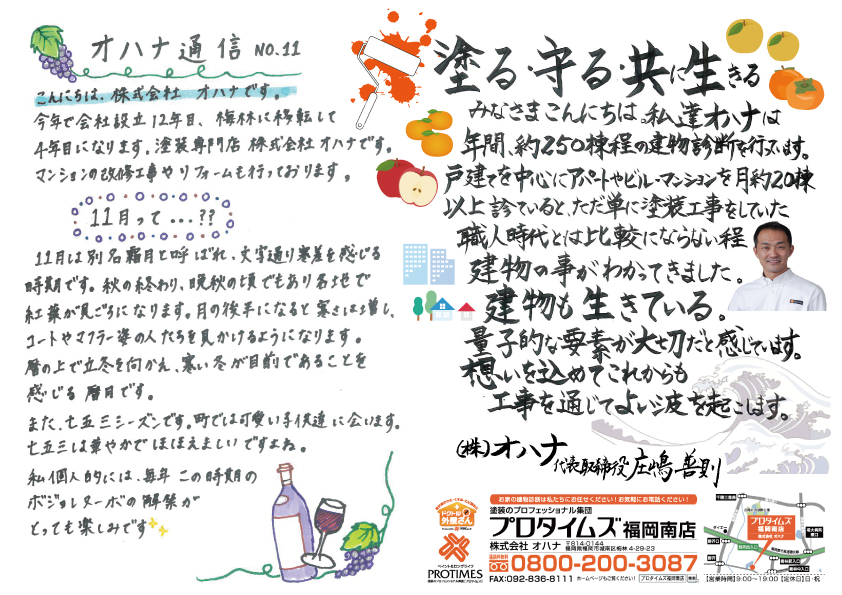 オハナ通信 NO.11
こんにちは、株式会社 オハナです。
今年で会社設立12年目、梅林に移転して
4年目になります。塗装専門店 株式会社オハナです。
マンションの改修工事やリフォームも行っております。
11月って...??
11月は別名霜月と呼ばれ、文字通り寒差を感じる
時期です。秋の終わり、晩秋の頃でもあり各地で
紅葉が見ごろになります。月の後半になると寒さは増し、
コートやマフラー姿の人たちを見かけるようになります。
暦の上で立冬を向かえ、寒い冬が目前であることを
感じる 暦月です。
また、七五三シーズンです。町では可愛い子供達に会います。
七五三は華やかでほほえましいですよね。
私個人的には、毎年この時期の
ボジョレヌーボの解禁が
とっても楽しみです
塗る・守る・共に生きる
みなさまこんにちは。私達オハナは
年間、約250棟程の建物診断を行ってます。
戸建てを中心にアパートやビル・マンションを月約20棟
以上診ていると、ただ単に塗装工事をしていた
職人時代とは比較にならない程
建物の事がわかってきました。
建物も生きている。
量子的な要素が大切だと感じています。
想いを込めてこれからも
工事を通じてよい波を起こします。
(株)オハナ 代表取締役 庄嶋 善則
お家の建物診断は私たちにお任せください!お気軽にお電話ください!
ドクトル外壁さん
塗装のプロフェッショナル集団
プロタイムズ福岡南店
株式会社 オハナ 〒814-0144 福岡県福岡市城南区梅林 4-29-23
0800-200-3087
FAX:092-836-8111 ホームページもご覧ください! プロタイムズ福岡南店 検索
ペイント&ロングライフ
PROTIMES
プロタイムズ
福岡南店
株式会社 オハナ
【営業時間】9:00～19:00【定休日】日・祝